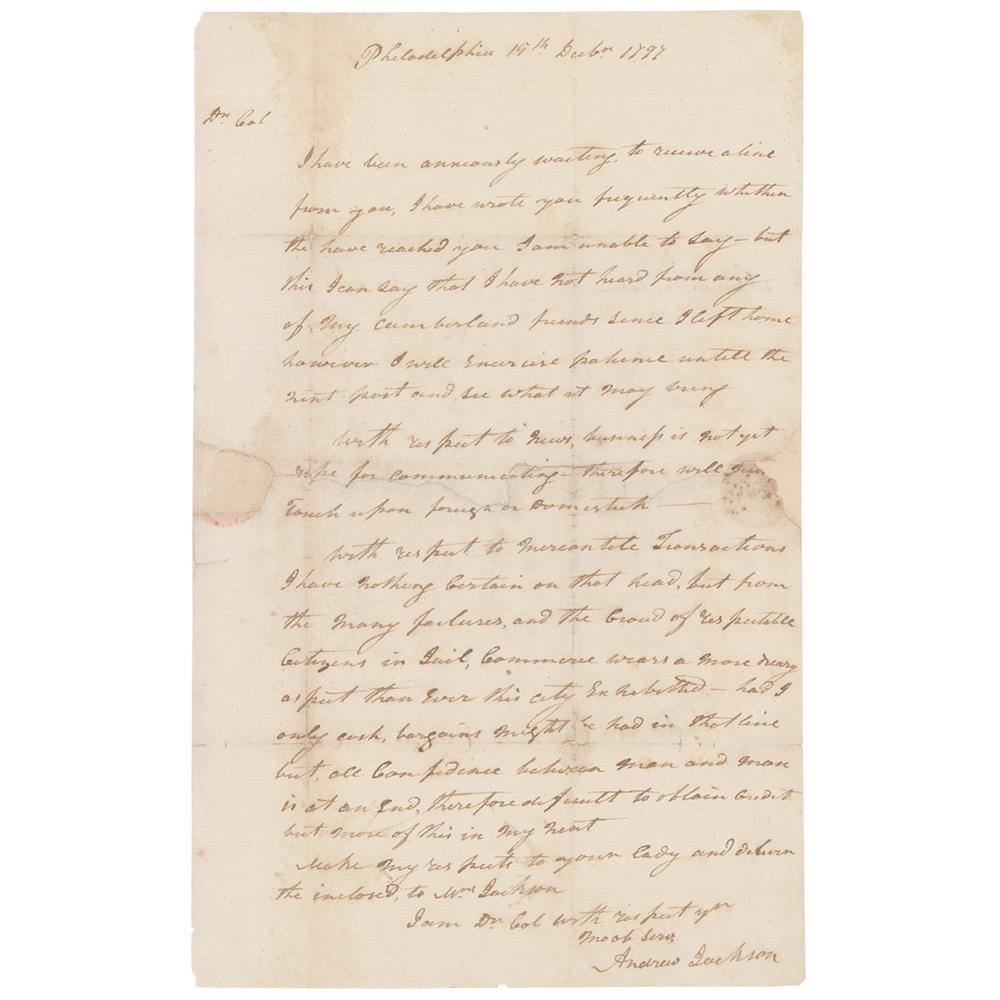 Philadelphia 15th Decbr 1797
Dr Col
I have been anxiously waiting, to receive a line
from you, I have wrote you frequently whether
the have reached you I am unable to say - but
this I can say that I have not heard from any
of my Cumberland friends since I left home
however I will Exercise patience untill the
next post and see what it may bring
With respect to news, business is not yet
ripe for communicating - therefore will
Touch upon foreign or Domestick
With respect to Mercantile Transactions
I have nothing Certain on that head, but from
the many failures, and the Croud of respectable
Citizens in Jail, Commerce wears a more dreary
aspect than Ever this city Exhebitted - had I
only cash, bargains might be had in that line
but, all Confidence between man and man
is at an End, therefore difficult to obtain Credit
but more of this in my next
Make my respects to your Lady and deliver
the inclosed, to Mrs Jackson
I am Dr Col with respect yr
mo ob serv
Andrew Jackson